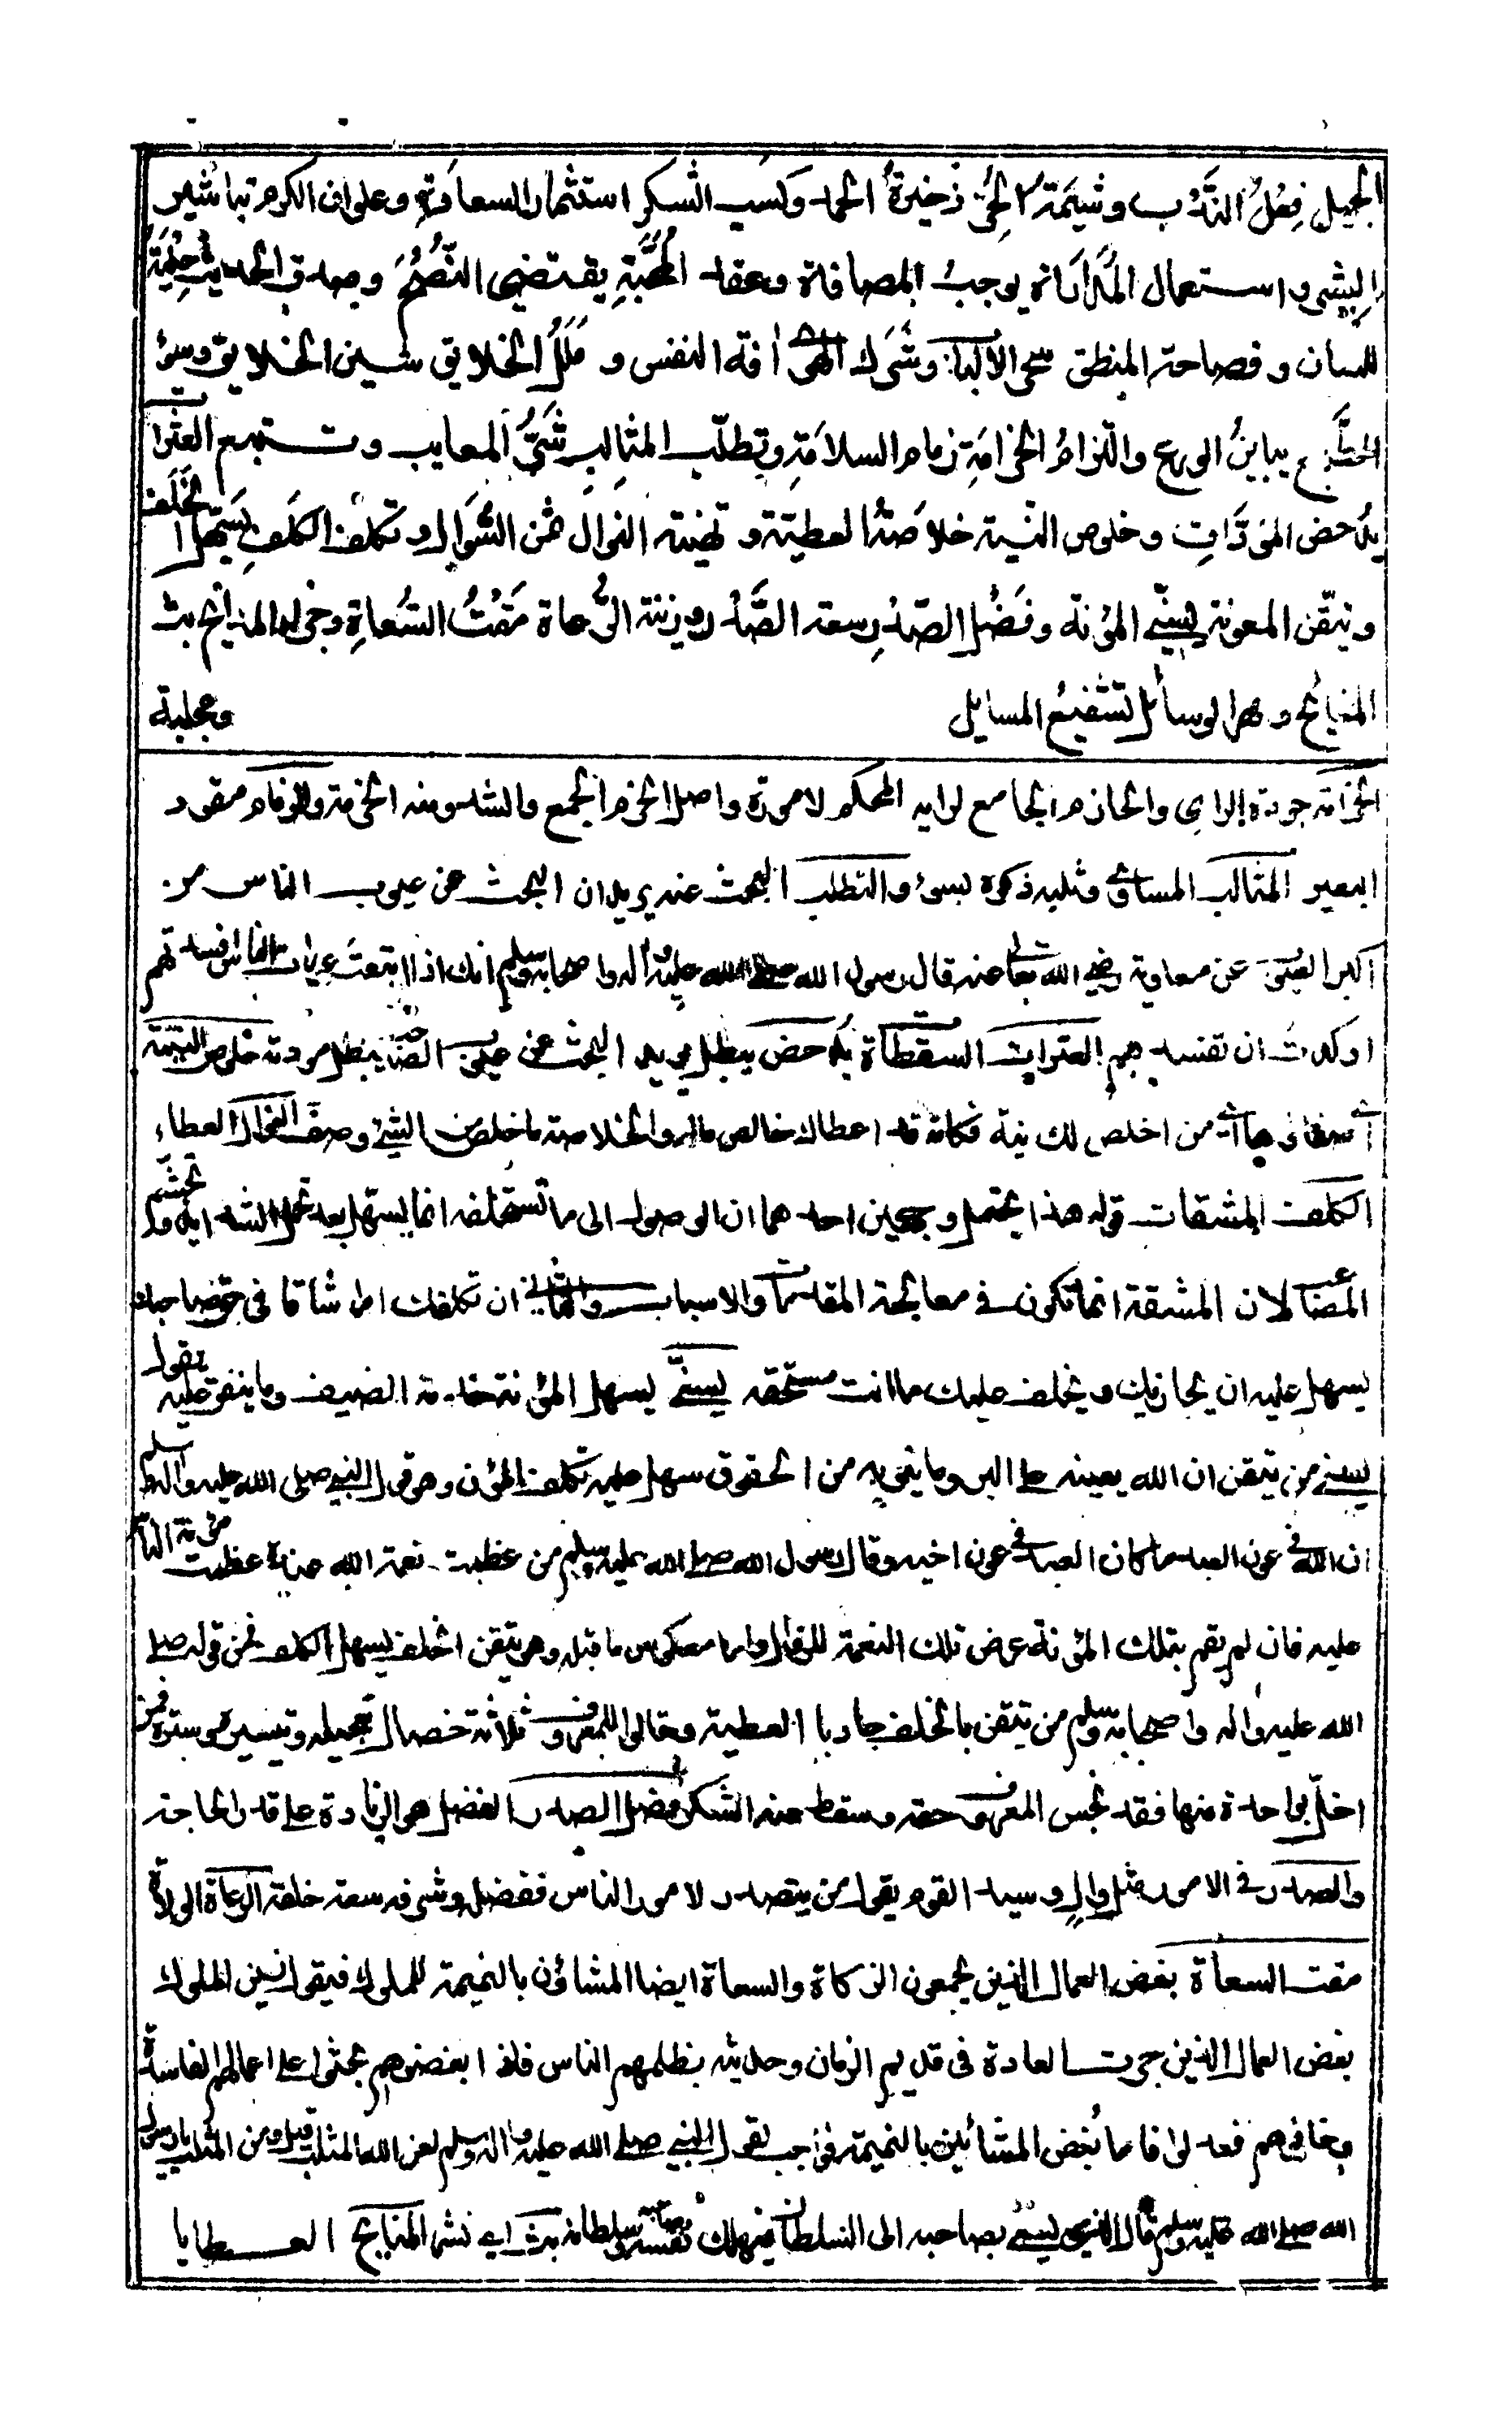 الجميل فِعْلُ النَّدْب وشِيْمَةُ الحُرِّ ذَخِيْرَةُ الحمد وكسب الشكر استثمار السعادَةِ وعنوان الكرم تباشير
البِشْر واستعمال المُدَارَاة يوجبُ المصافاة وعقد المُحَبَّةِ يقتضي النُّصْحَ وصدق الحديث حِلْيَةُ
اللسان وفصاحة المنطق سحر الألباب وشَرَك الهَوى آفة النفس ومَلَلُ الخلايق شين الخلايق وسوء
الطَّبْع يباين الورع والتزامُ الحَزامَةِ زمام السلامَةِ وتطلّب المثالِب شَرُّ المعايب وتتبع العثرات
يدحض المودَّاتِ وخلوص النيّة خلاصَةُ العطيّة وتهنئة النوال ثمن السُّوَال وتكلف الكَلَفِ يُسَهِّل الخَلَف
وتيقّن المعونة يُسَنّي المؤنة وفَضْل الصّدْر سعة الصَّدْر وزينة الرُّعاة مَقْتُ السُعاةِ وجزاء المدائح بثُّ
المنائح ومهر الوسائل تشفيع المسايل ومجلبة
الحزامة جودة الراي والحازم الجامع لرايه المحكم لاموره واصل الحزم الجمع والشد ومنه الحزمة والزمام مقود
البعير المثالب المساوي وثلبه ذكره بسوء والتطلب البحث عنه يريد ان البحث عن عيوب الناس من
اكبر العيوب عن معاوية رضي الله تعالى عنه قال رسول الله صلى الله عليه وآله واصحابه وسلم انك اذا اتبعت عورات الناس افسدتهم
او كدت ان تفسدهم العثرات السقطاة يدحض يبطل يريد البحث عن عيوب يبطل مودته خلوص النية
اي صفاؤها اي من اخلص لك نية فكانه قد اعطاك خالص ماله والخلاصة ما خلص من الشيء وصفا النوال العطاء
الكلف المشقات قوله هذا يحتمل وجهين احدهما ان الوصول الى ما تستخلفه انما يسهل بعد تحمل الشدايد وتجشم
المصايب لان المشقة انما تكون في معالجة المقدمات والاسباب والثاني ان تكلفك امرا شاقا في حق صاحبك
يسهل عليه ان يجازيك ويخلف عليك ما انت مستحقه يسنّي يسهل المؤنة خدمة الضيف وما ينفق عليه يقول
يسني من تيقن ان الله يعينه على البر وما ينويه من الحقوق سهل عليه تكلف المؤن وهو قول النبي صلى الله عليه وآله وسلم
ان الله في عون العبد ما كان العبد في عون اخيه وقال رسول الله صلى الله عليه وسلم من عظمت نعمة الله عنده عظمت مؤنة الناس
عليه فان لم يقم بتلك المؤنة عرض تلك النعمة للزوال واما معكوس ما قبله وهو تيقن الخلف يسهل الكلف فمن قوله صلى
الله عليه وآله واصحابه وسلم من تيقن بالخلف جاد بالعطية وقالوا للمعروف ثلاثة خصال تعجيله وتيسيره وستره فمن
اخلّ بواحدة منها فقد بخس المعروف حقه وسقط عنه الشكر فضل الصدر الفضل هو الزيادة على قدر الحاجة
والصدر في الامور مثل والٍ وسيد القوم يقول من يتصدر لامور الناس ففضله وشرفه سعة خلقه الرعاة الولاة
مقت السعاة بغض العمال الذين يجمعون الزكاة والسعاة ايضا المشاؤن بالنميمة للملوك فيقول زين الملوك
بغض العمال الذين جرت العادة في قديم الزمان وحديثه بظلمهم الناس فاذا ابغضوهم بحثوا على اعمالهم الفاسدة
وخافوهم فعدلوا فاما بُغض المشائين بالنميمة فواجب لقول النبي صلى الله عليه وآله وسلم لعن الله المثلث قيل ومن المثلث يا رسول
الله صلى الله عليه وسلم قال الذي يسعى بصاحبه الى السلطان فيهلك نفسه وصاحبه وسلطانه بث اي نشر المنايح العطايا